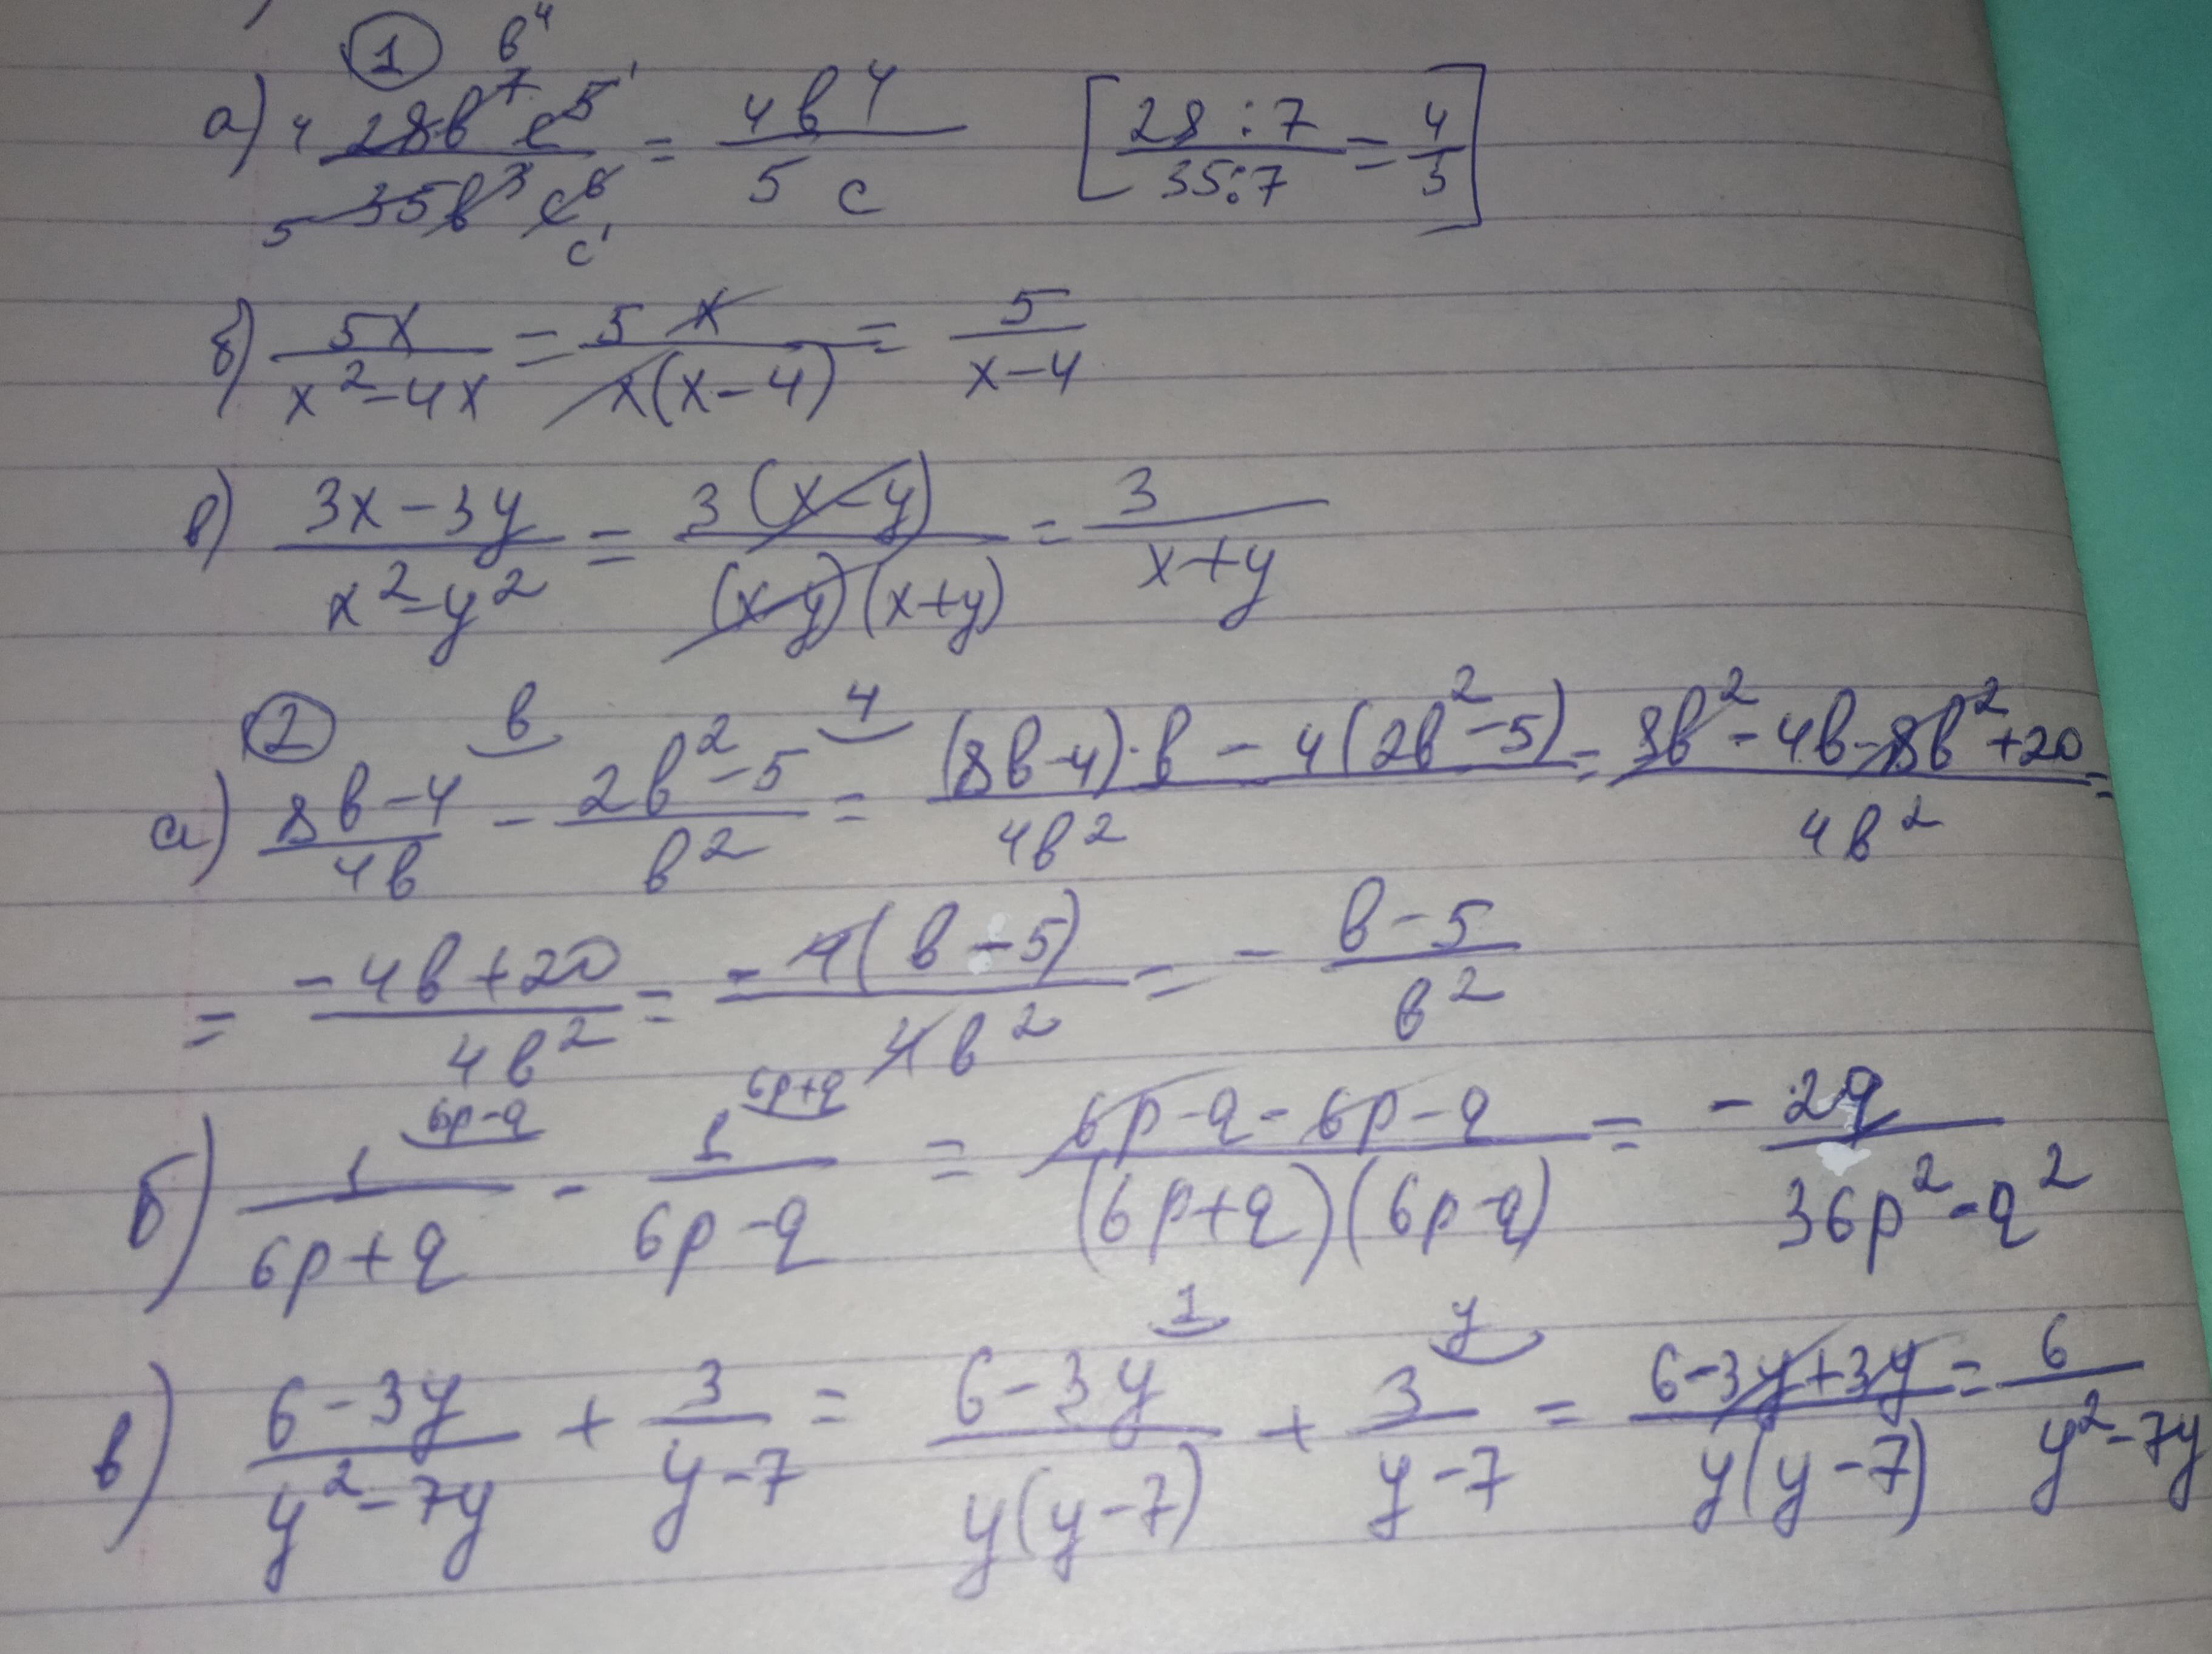 ① в⁴
а) 4 28в⁷с⁵ ¹ / 5 35в³с⁶ с¹ = 4в⁴ / 5с [28:7 / 35:7 = 4/5]
б) 5x / x²-4x = 5x / x(x-4) = 5 / x-4
в) 3x-3y / x²-y² = 3(x-y) / (x-y)(x+y) = 3 / x+y
② в 4
а) 8в-4 / 4в - 2в²-5 / в² = (8в-4)·в - 4(2в²-5) / 4в² = 8в²-4в-8в²+20 / 4в² =
= -4в+20 / 4в² = -4(в-5) / 4в² = - в-5 / в²
6p-q 6p+q
б) 1 / 6p+q - 1 / 6p-q = 6p-q-6p-q / (6p+q)(6p-q) = -2q / 36p²-q²
1 y
в) 6-3y / y²-7y + 3 / y-7 = 6-3y / y(y-7) + 3 / y-7 = 6-3y+3y / y(y-7) = 6 / y²-7y